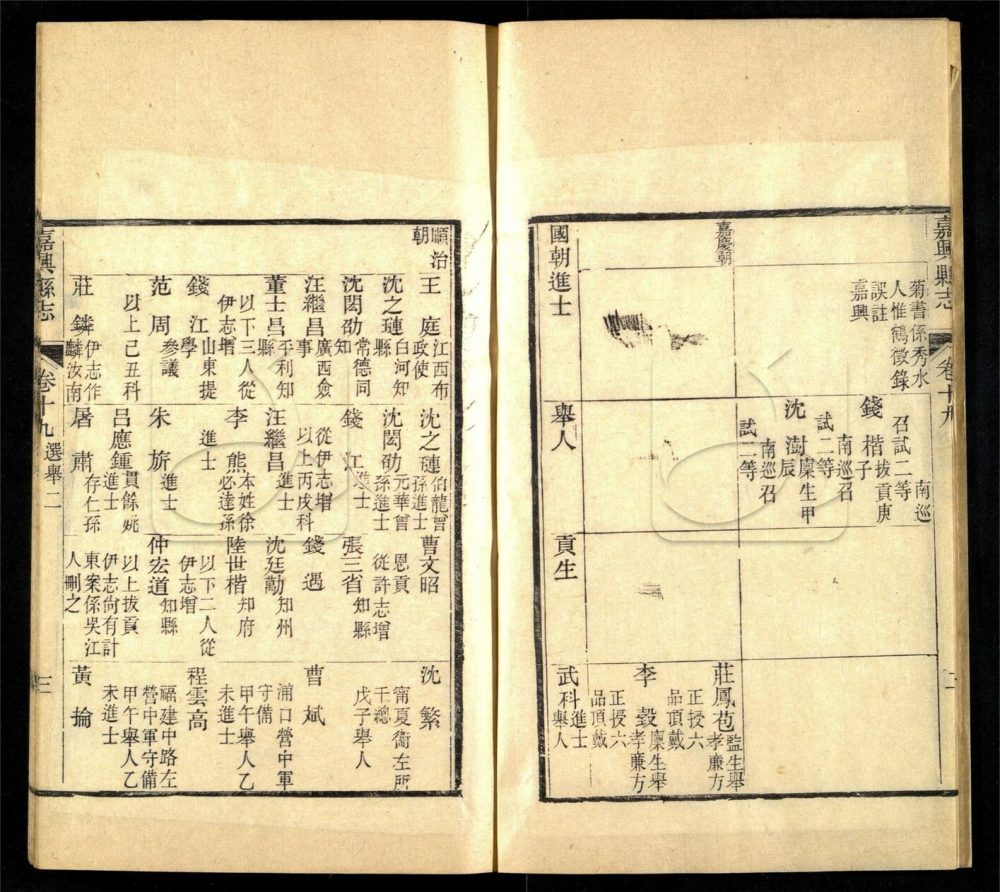 嘉興縣志
卷十九
二
菊書係秀水
人惟鶴徵錄
誤註
嘉興
南巡
召試二等
錢楷拔貢庚
子
南巡召
試二等
沈澍廩生甲
辰
南巡召
試二等
嘉慶朝
莊鳳苞監生舉
孝廉方
正授六
品頂戴
李瑴廩生舉
孝廉方
正授六
品頂戴
國朝進士
舉人
貢生
武科進士
舉人
順治
朝
王庭江西布
政使
沈之璉白河知
縣
沈閎劭常德同
知
汪繼昌廣西僉
事
董士昌平利知
縣
以下三人從
伊志增
錢江山東提
學
范周參議
以上己丑科
莊鏻伊志作
麟汝南
沈之璉伯龍曾
孫進士
沈閎劭元華曾
孫進士
錢江進士
從伊志增
以上丙戌科
汪繼昌進士
李熊本姓徐
必達孫
進士
朱旂進士
呂應鍾貫餘姚
進士
屠肅存仁孫
曹文昭
恩貢
從許志增
張三省知縣
錢遇
沈廷勱知州
陸世楷知府
以下二人從
伊志增
仲宏道知縣
以上拔貢
伊志尙有計
東案係吳江
人刪之
沈繁
甯夏衞左所
千總
戊子舉人
曹斌
浦口營中軍
守備
甲午舉人乙
未進士
程雲高
福建中路左
營中軍守備
甲午舉人乙
未進士
黃掄
嘉興縣志
卷十九
選舉二
三